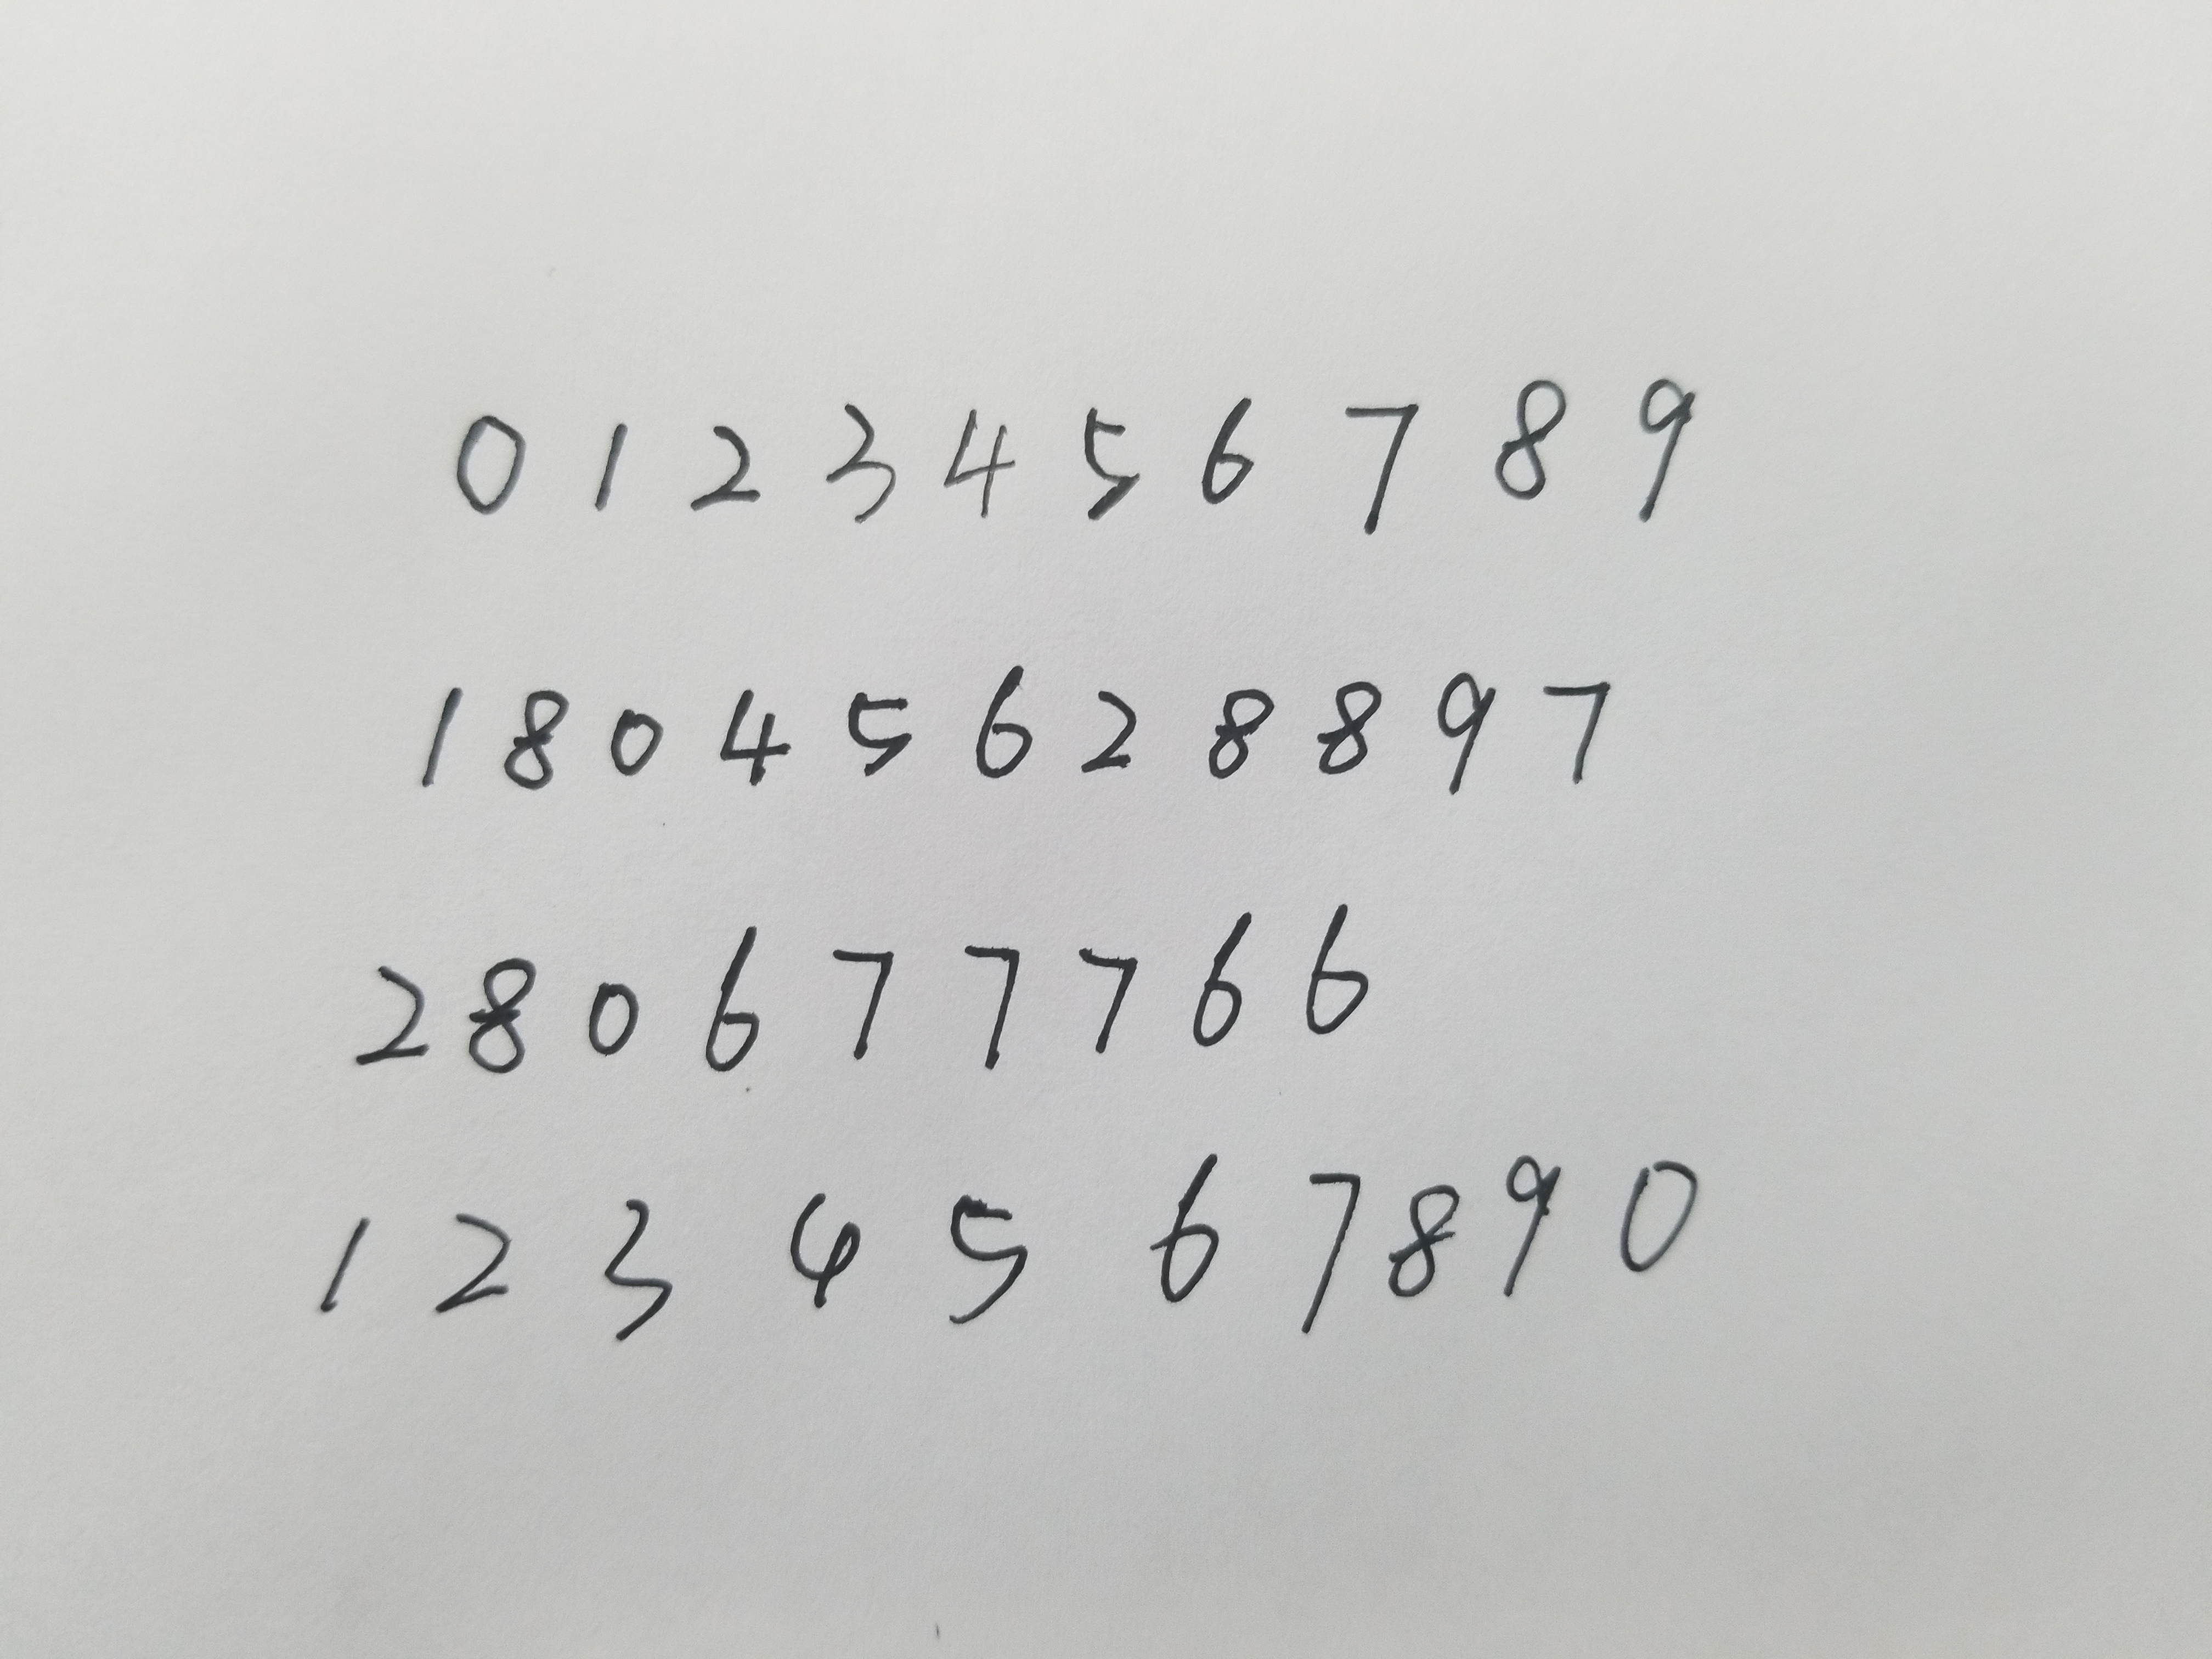 0 1 2 3 4 5 6 7 8 9
1 8 0 4 5 6 2 8 8 9 7
2 8 0 6 7 7 7 6 6
1 2 3 4 5 6 7 8 9 0